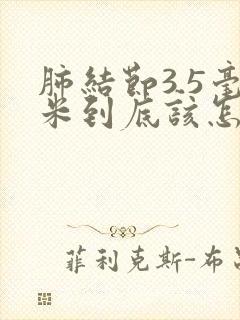 肺結節3.5毫
米到底該怎
菲利克斯-布